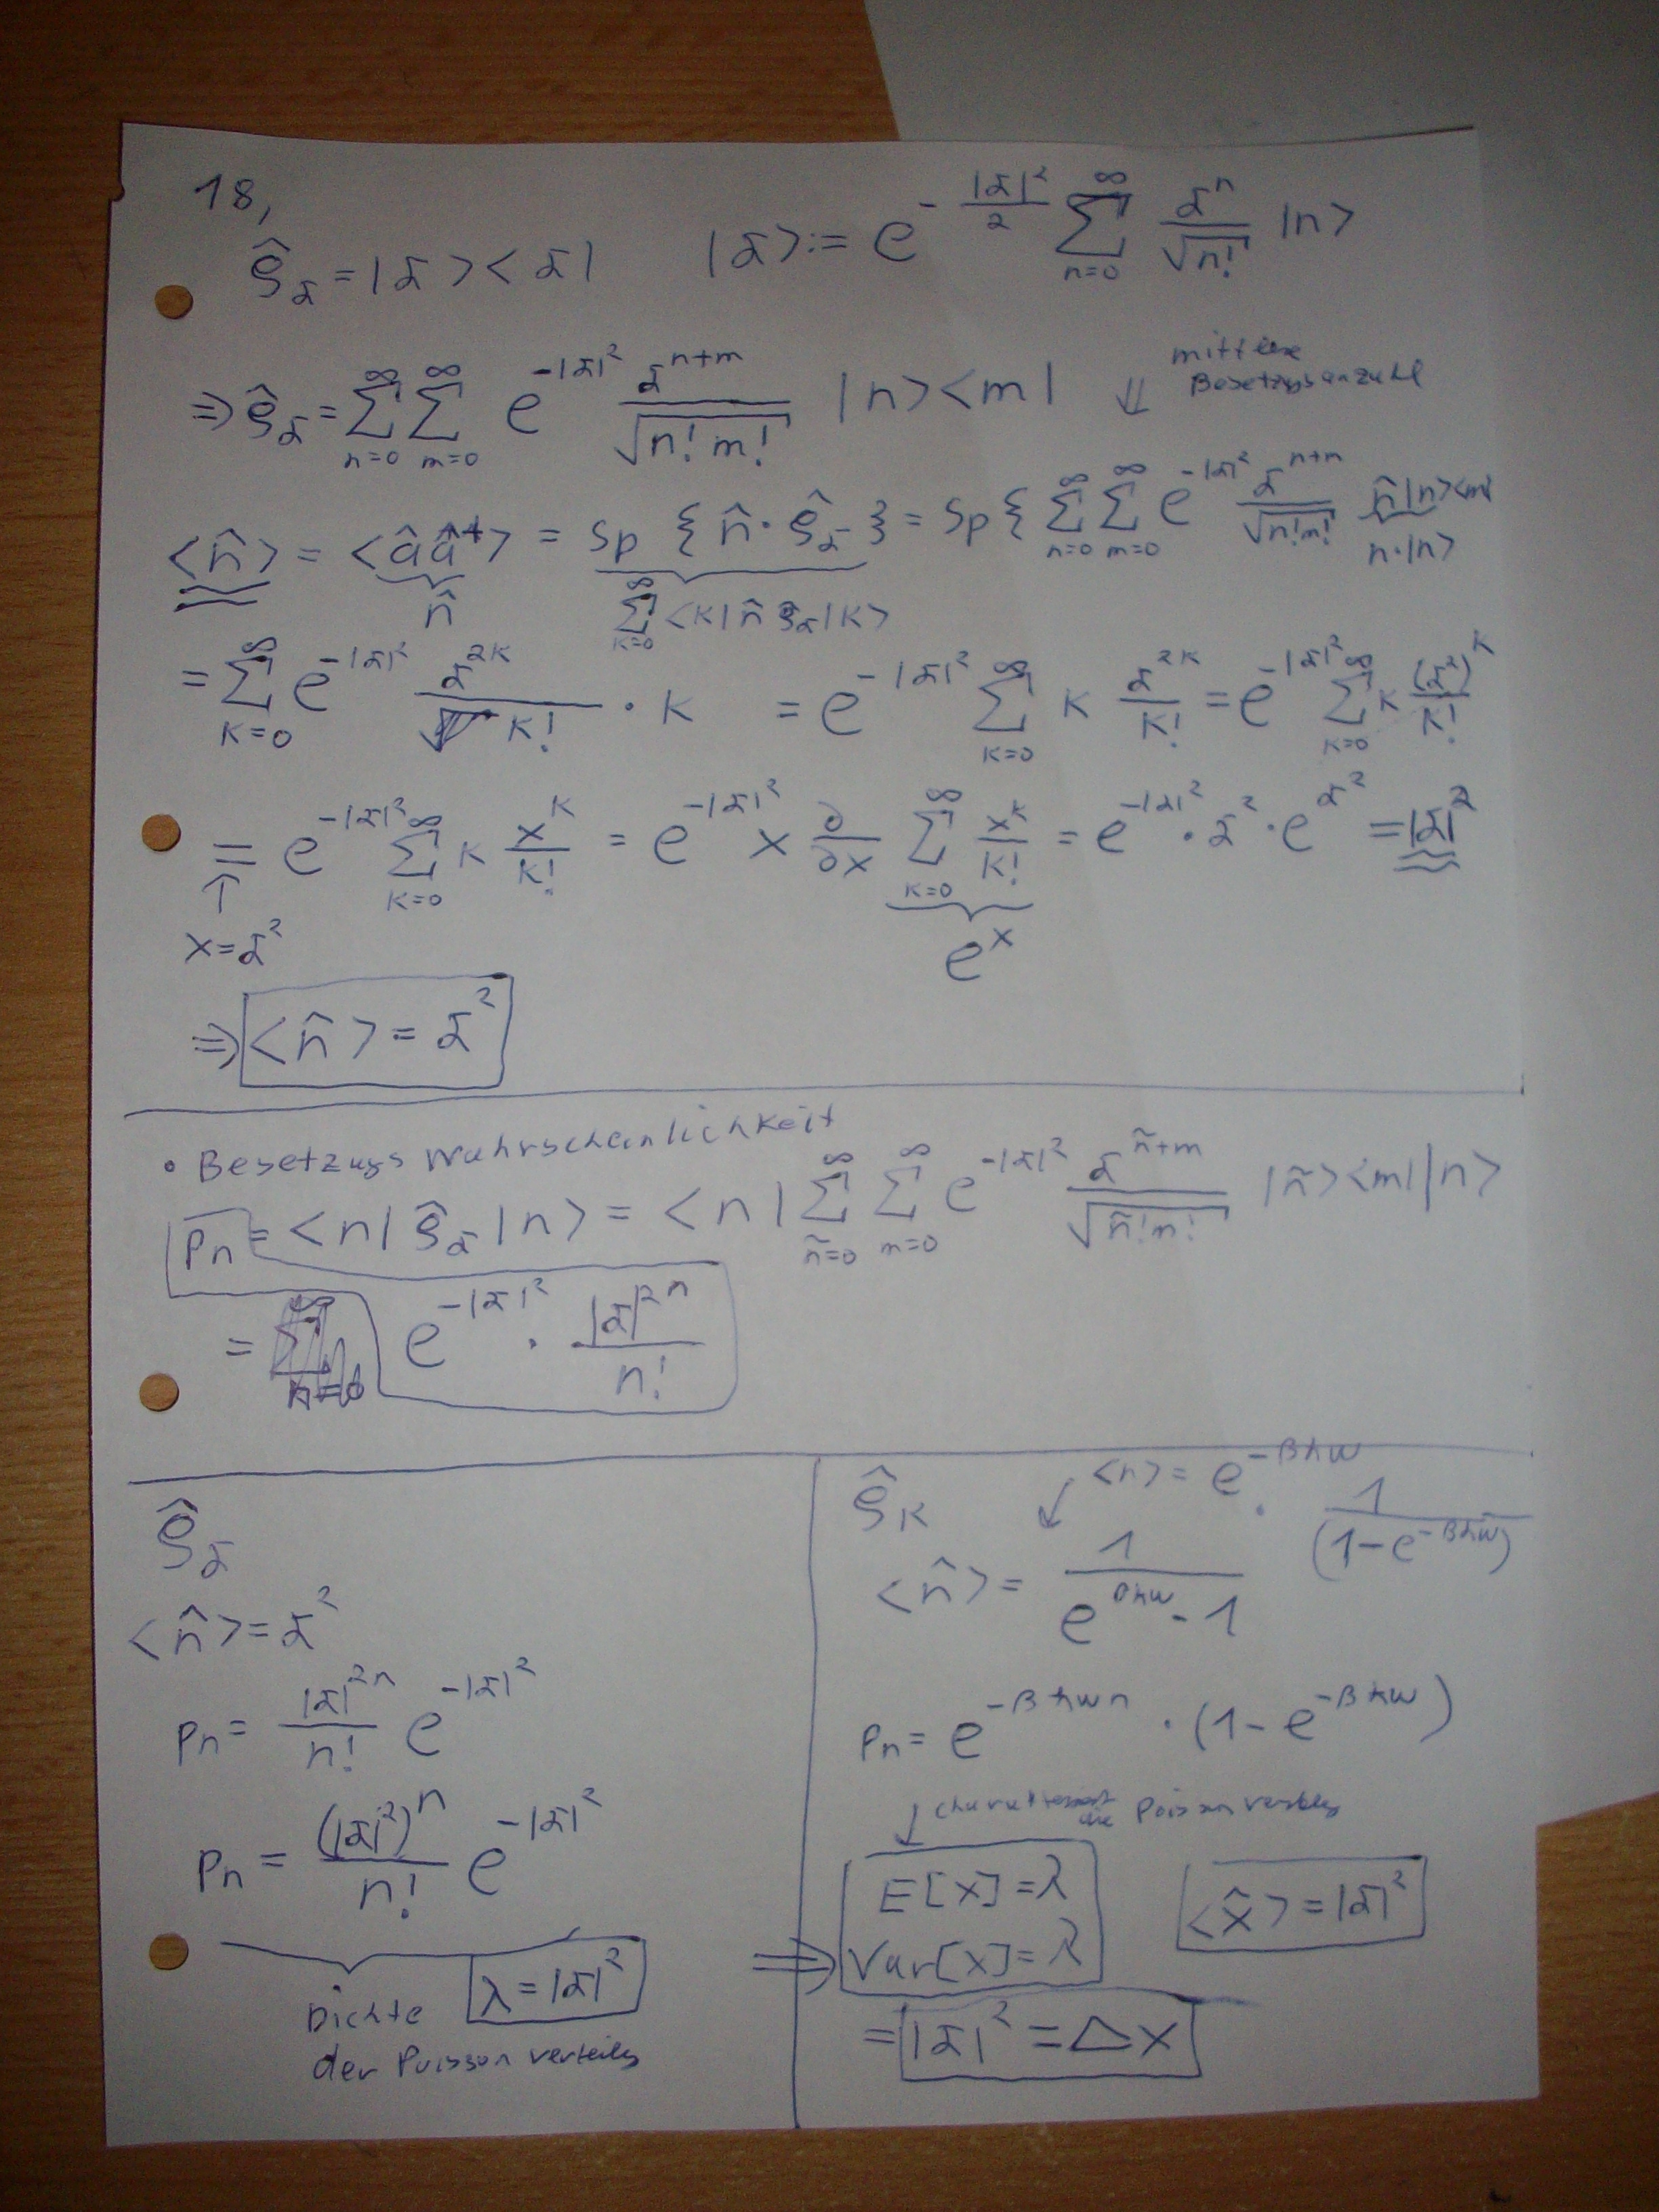 18,
ρ̂_α = |α><α|   |α> := e^{-|α|²/2} ∑_{n=0}^{∞} α^n/√n! |n>
⇒ ρ̂_α = ∑_{n=0}^{∞} ∑_{m=0}^{∞} e^{-|α|²} α^{n+m}/√(n! m!) |n><m| ⇓ ← mittlere Besetzgsanzahl
<n̂> = <â â⁺> = Sp {n̂ · ρ̂_α} = Sp { ∑_{n=0}^{∞} ∑_{m=0}^{∞} e^{-|α|²} α^{n+m}/√(n!m!) n̂|n><m|
n̂   ∑_{k=0}^{∞} <k| n̂ ρ̂_α |k>   n·|n>
= ∑_{k=0}^{∞} e^{-|α|²} α^{2k}/k! · k = e^{-|α|²} ∑_{k=0}^{∞} k α^{2k}/k! = e^{-|α|²} ∑_{k=0}^{∞} k (α²)^k/k!
= e^{-|α|²} ∑_{k=0}^{∞} k x^k/k! = e^{-|α|²} x ∂/∂x ∑_{k=0}^{∞} x^k/k! = e^{-|α|²} · α² · e^{α²} = |α|²
↑
x = α²   e^x
⇒ <n̂> = α²
• Besetzugs Wahrscheinlichkeit
p_n = <n| ρ̂_α |n> = <n| ∑_{ñ=0}^{∞} ∑_{m=0}^{∞} e^{-|α|²} α^{ñ+m}/√(ñ!m!) |ñ><m| |n>
= e^{-|α|²} · |α|^{2n}/n!
ρ̂_α
<n̂> = α²
p_n = |α|^{2n}/n! e^{-|α|²}
p_n = (|α|²)^n/n! e^{-|α|²}
Dichte der Poisson verteilg   λ = |α|²
ρ̂_K   ↙ <n> = e^{-βħω} · 1/(1-e^{-βħω})
<n̂> = 1/(e^{βħω} - 1)
p_n = e^{-βħωn} · (1 - e^{-βħω})
↓ die Poisson
E[x] = λ   <x̂> = |α|²
⇒ Var[x] = λ
= |α|² = Δx